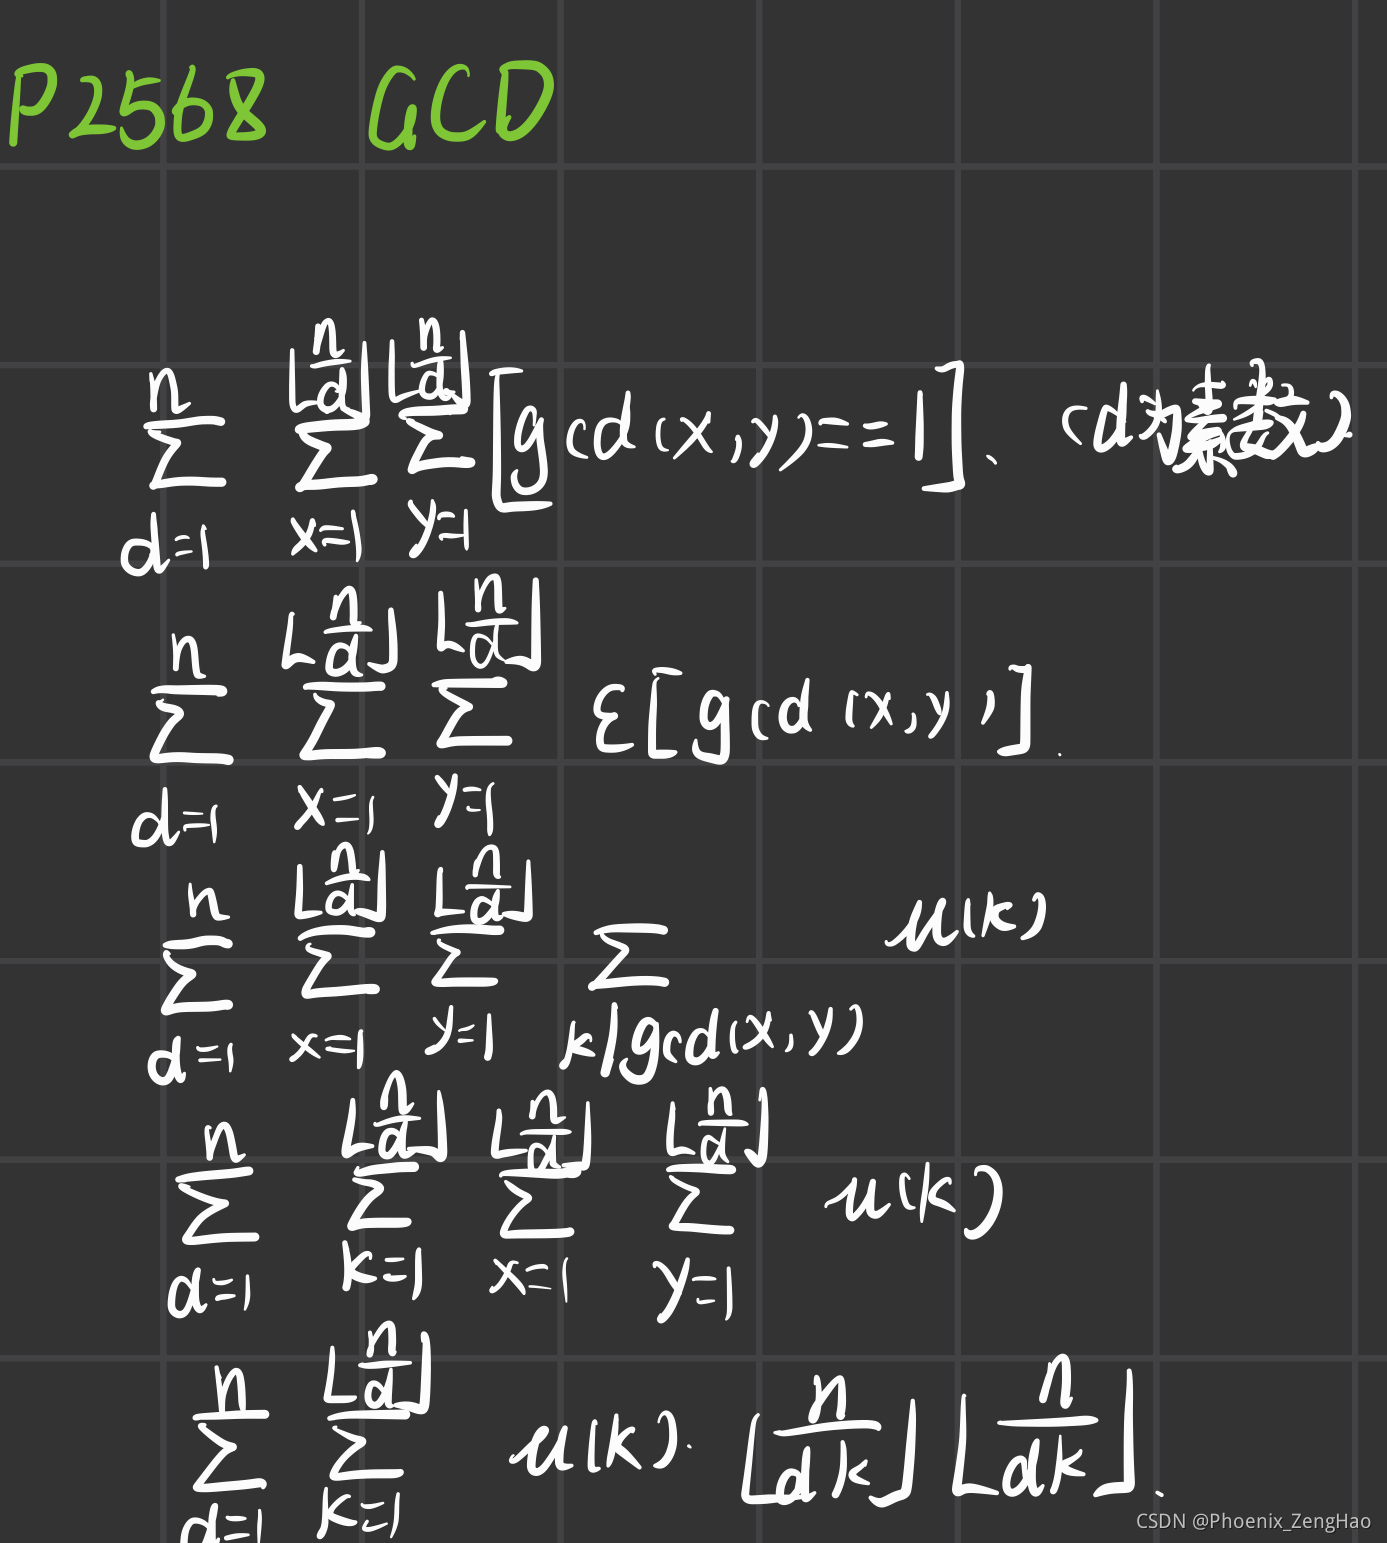 P2568 GCD
$\sum_{d=1}^{n} \sum_{x=1}^{\lfloor \frac{n}{d} \rfloor} \sum_{y=1}^{\lfloor \frac{n}{d} \rfloor} [gcd(x,y)==1]$、(d为素数)
$\sum_{d=1}^{n} \sum_{x=1}^{\lfloor \frac{n}{d} \rfloor} \sum_{y=1}^{\lfloor \frac{n}{d} \rfloor} ε[gcd(x,y)]$.
$\sum_{d=1}^{n} \sum_{x=1}^{\lfloor \frac{n}{d} \rfloor} \sum_{y=1}^{\lfloor \frac{n}{d} \rfloor} \sum_{k|gcd(x,y)} u(k)$
$\sum_{d=1}^{n} \sum_{k=1}^{\lfloor \frac{n}{d} \rfloor} \sum_{x=1}^{\lfloor \frac{n}{d} \rfloor} \sum_{y=1}^{\lfloor \frac{n}{d} \rfloor} u(k)$
$\sum_{d=1}^{n} \sum_{k=1}^{\lfloor \frac{n}{d} \rfloor} u(k) · \lfloor \frac{n}{dk} \rfloor \lfloor \frac{n}{dk} \rfloor$.
CSDN @Phoenix_ZengHao